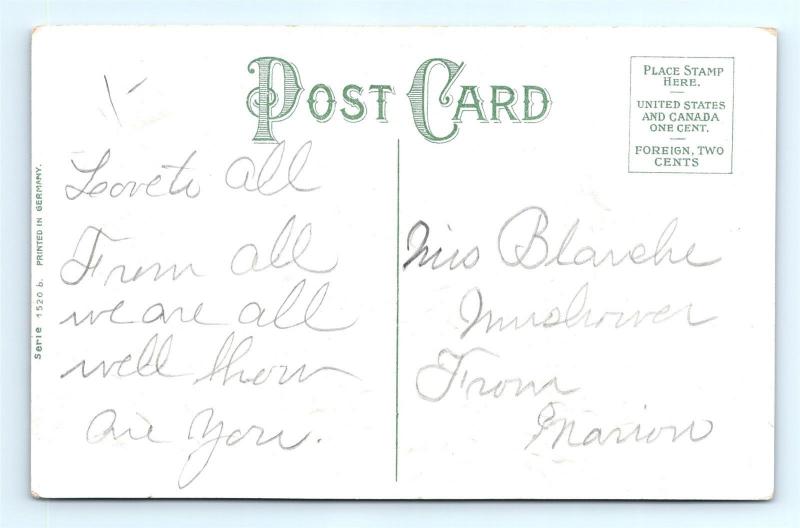 POST CARD
PLACE STAMP
HERE.
UNITED STATES
AND CANADA
ONE CENT.
FOREIGN, TWO
CENTS
Serie 1520 b. PRINTED IN GERMANY.
Love to all
From all
we are all
well
are you.
Miss Blanche
From
Marion